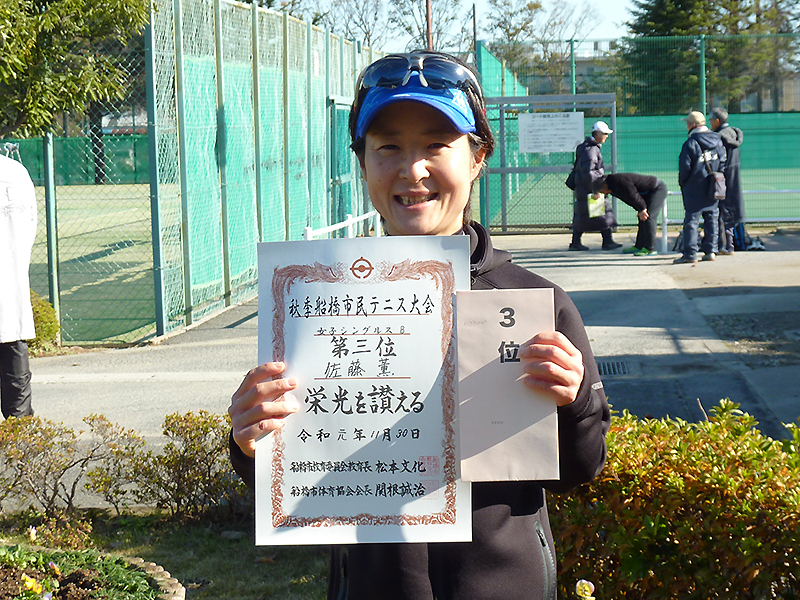 秋季船橋市民テニス大会
女子シングルスB
第三位
佐藤 薫
栄光を讃える
令和元年11月30日
船橋市教育委員会教育長 松本文化
船橋市体育協会会長 関根誠治
3
位